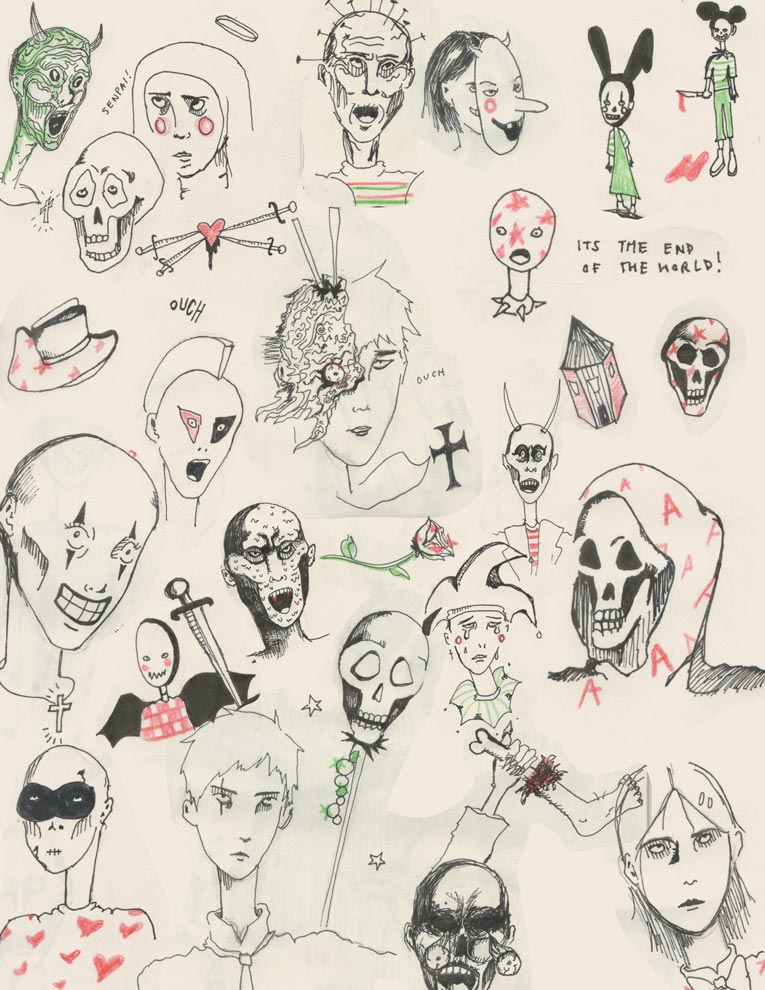 SENPAI!
ITS THE END
OF THE WORLD!
OUCH
OUCH
A
A
A
A
A
A
A